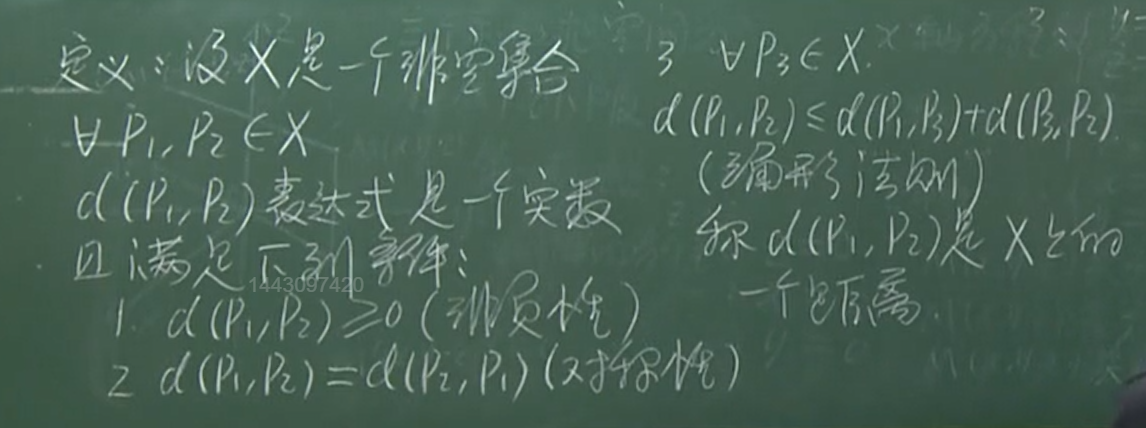 定义：设X是一个非空集合
∀P₁,P₂∈X
d(P₁,P₂)表达式是一个实数
且满足下列条件：
1. d(P₁,P₂)≥0(非负性)
2 d(P₁,P₂)=d(P₂,P₁)(对称性)
3 ∀P₃∈X.
d(P₁,P₂)≤d(P₁,P₃)+d(P₃,P₂)
(三角形法则)
称d(P₁,P₂)是X上的
一个距离.
1443097420